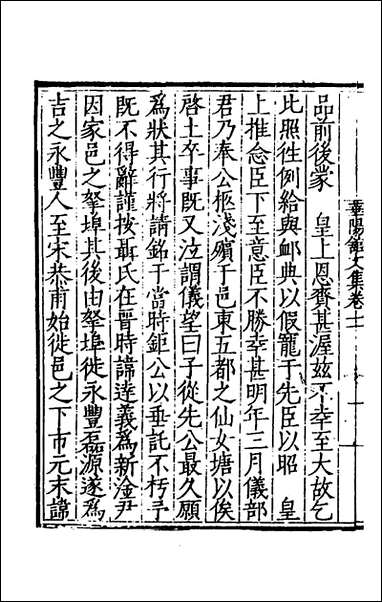 品前後蒙　皇上恩賚甚渥兹不幸至大故乞
比照徃例給與卹典以假寵于先臣以昭　皇
上推念臣下至意臣不勝幸甚明年三月儀部
君乃奉公柩淺殯于邑東五都之仙女塘以俟
啓土卒事既又泣謂儀望曰子從先公最久願
爲狀其行將請銘于當時鉅公以垂託不朽予
既不得辭謹按聶氏在晋時諱逹義爲新淦尹
因家邑之拏埠其後由拏埠徙永豐磊源遂爲
吉之永豐人至宋恭甫始徙邑之下市元末諱
華陽館文集卷十一